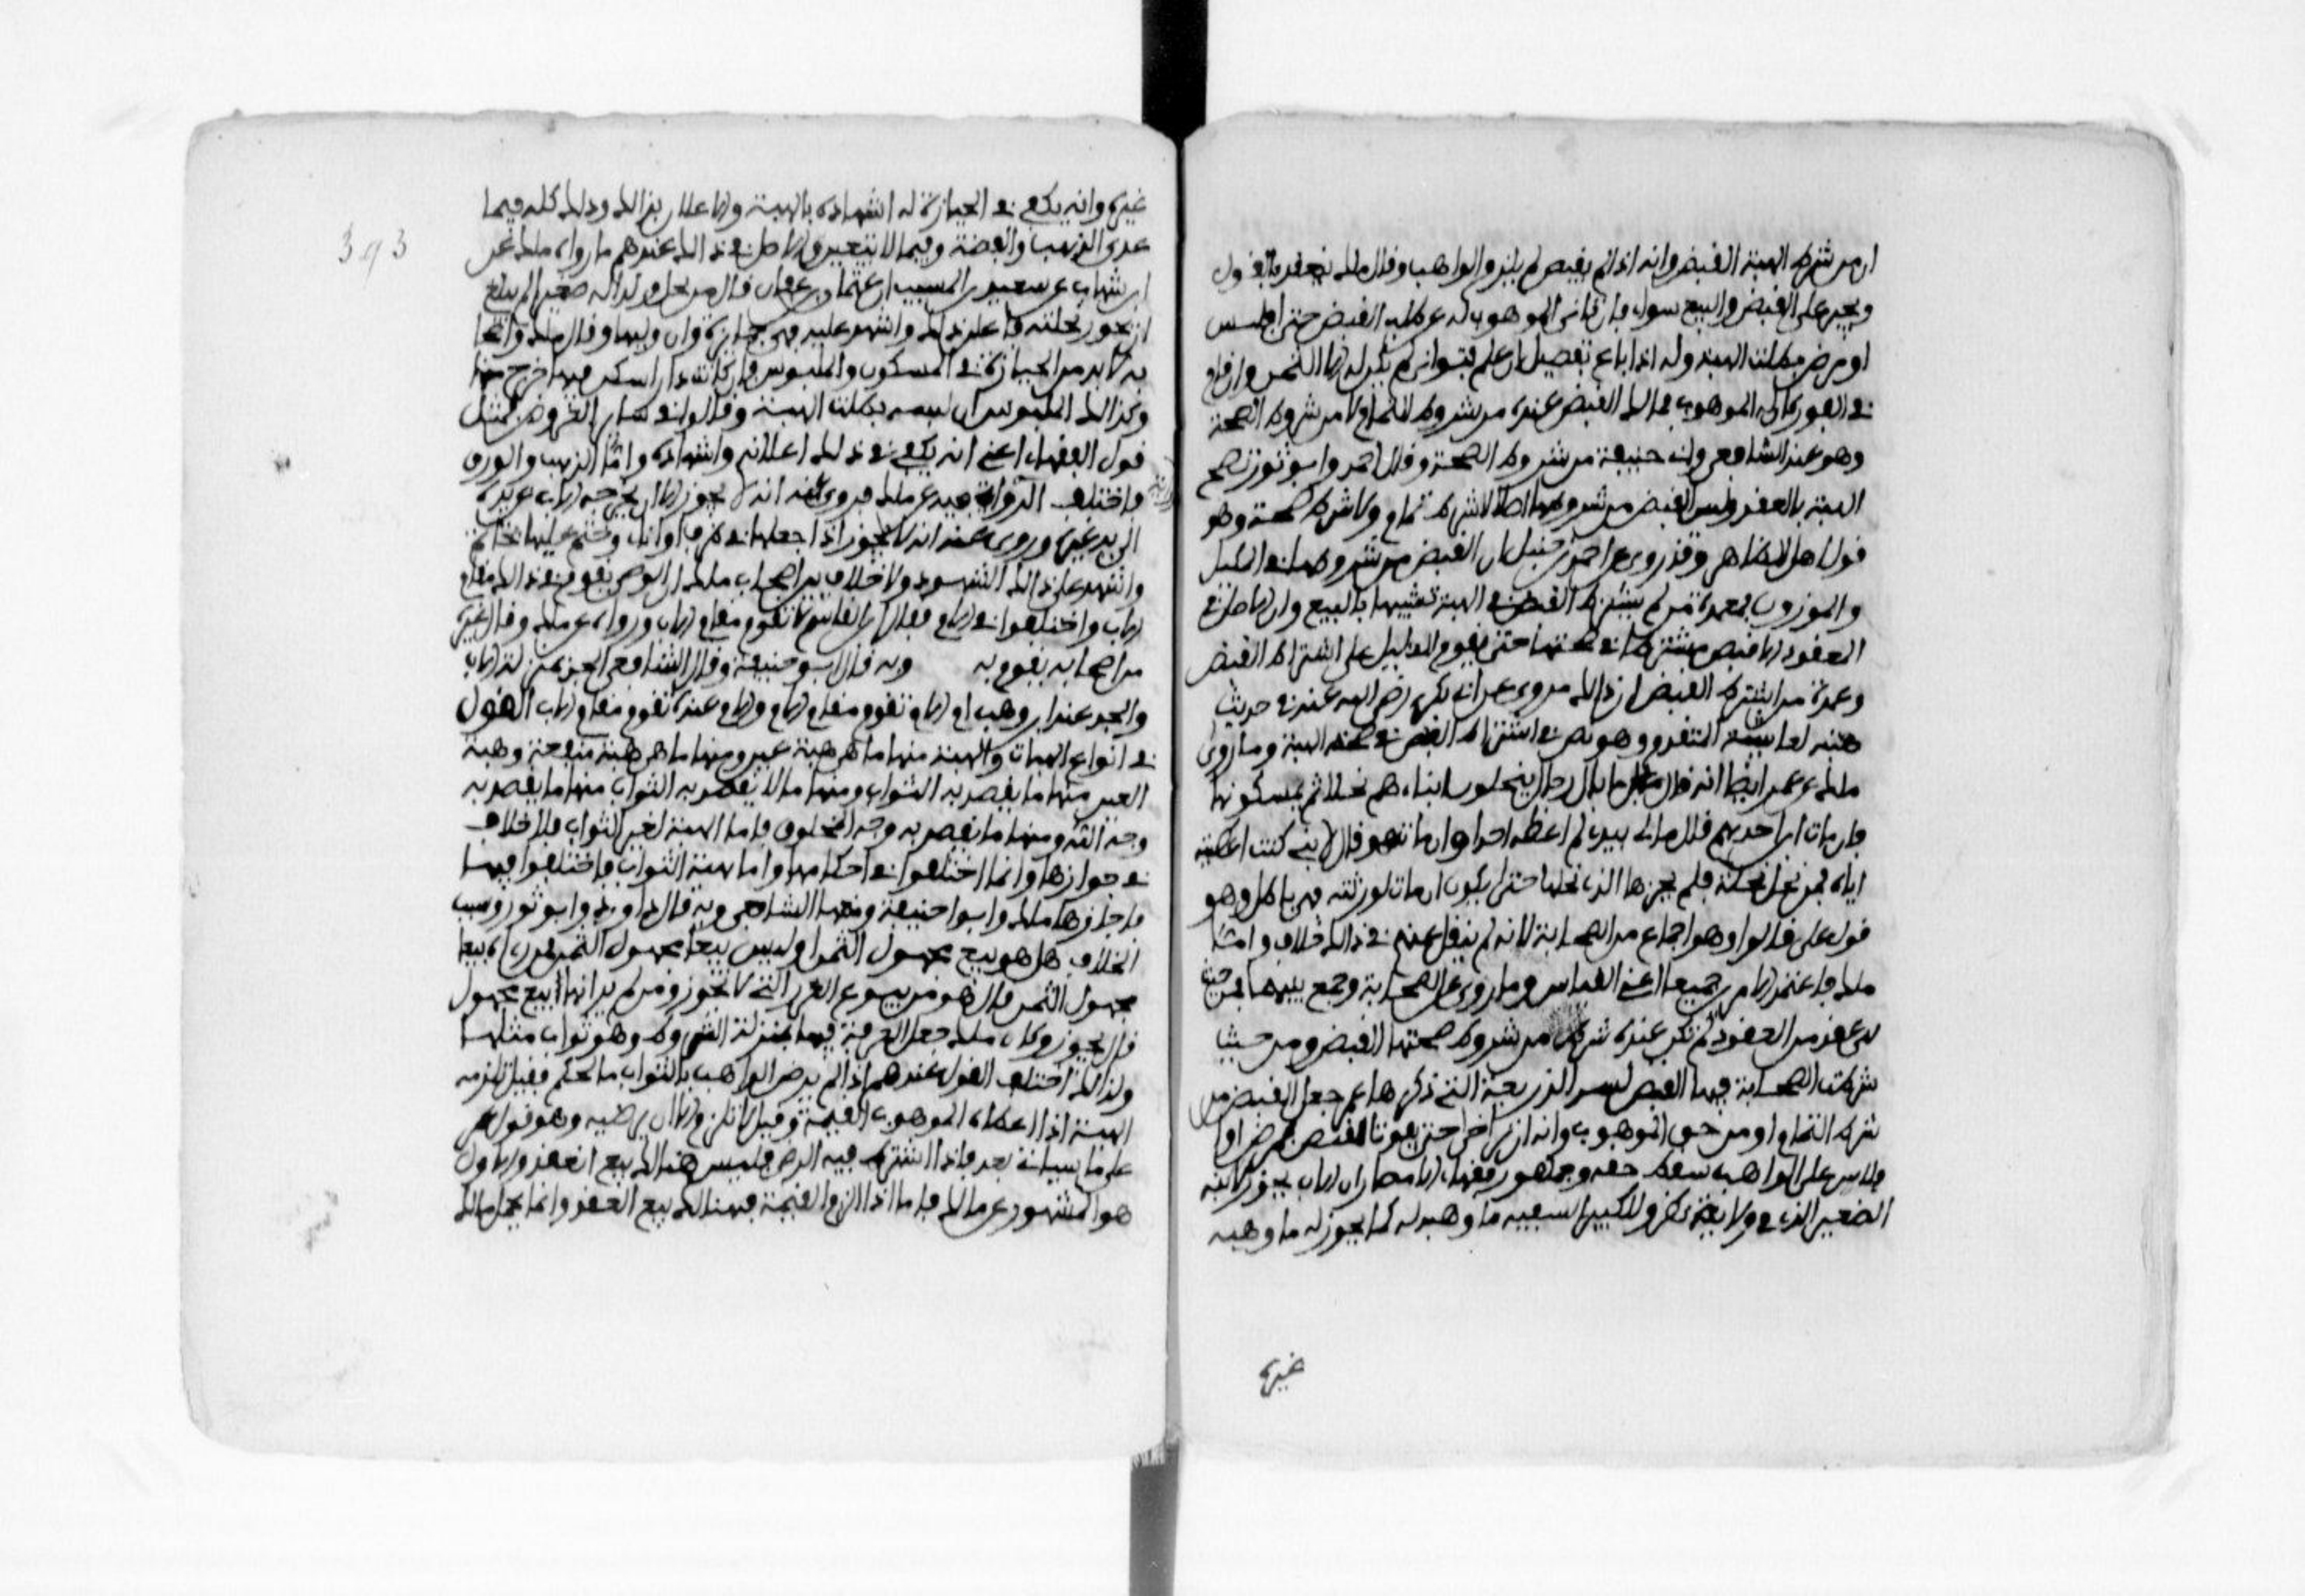 ان من شرط الهبة القبض وانه اذا لم يقبض لم يلزم الواهب وقال ملك ينعقد بالقول
ويجبر على القبض والبيع سواء فان تانى الموهوب له عن طلب القبض حتى افلس
او مرض بطلت الهبة وله اذا باع تفصيل ان علم فتوانى لم يكن له الا الثمن وان قام
في الفور كان له الموهوب فمالك القبض عنده من شروط التمام لا من شروط الصحة
وهو عند الشافعي وابي حنيفة من شروط الصحة وقال احمد وابو ثور تصح
الهبة بالعقد وليس القبض من شروطها اصلا لا شرط تمام ولا شرط صحة وهو
قول اهل الظاهر وقد روي عن احمد بن حنبل ان القبض من شروطها في المكيل
والموزون فعمدة من لم يشترط القبض في الهبة تشبيهها بالبيع وان الاصل في
العقود الا قبض مشترط في صحتها حتى يقوم الدليل على اشتراط القبض
وعمدة من اشترط القبض ان ذالك مروي عن ابي بكر رضي الله عنه في حديث
هبته لعائشة المتقدم وهو نص في اشتراط القبض في صحة الهبة وما روى
ملك عن عمر ايضا انه قال ما بال رجال ينحلون ابناءهم نحلا ثم يمسكونها
فان مات ابن احدهم قال مالي بيدي لم اعطه احدا وان مات هو قال لابني كنت اعطيته
اياه فمن نحل نحلة فلم يحزها الذي نحلها حتى يكون ان مات لورثته فهي باطل وهو
قول علي قالوا وهو اجماع من الصحابة لانه لم ينقل عنهم في ذالك خلاف واما
ملك فاعتمد الامرين جميعا اعني القياس وما روي عن الصحابة وجمع بينهما فمن حيث
هي عقد من العقود لم يكن عنده شرط من شروط صحتها القبض ومن حيث
شرطت الصحابة فيها القبض لسد الذريعة التي ذكرها عمر جعل القبض من
شرط التمام او من حق الموهوب وانه ان تراخى حتى يفوت القبض بمرض او
فلاس على الواهب سقط حقه وجمهور فقهاء الامصار ان الاب يحوز لابنه
الصغير الذي في ولاية نظره وللكبير السفيه ما وهبه له كما يحوز له ما وهبه
غيره
393
غيره وانه يكفي في الحيازة له اشهاده بالهبة والاعلان بذالك وذلك كله فيما
عدى الذهب والفضة وفيما لا يتعين والاصل في ذالك عندهم ما رواه ملك عن
ابن شهاب عن سعيد بن المسيب ان عثمان بن عفان قال من نحل ولدا له صغيرا لم يبلغ
ان يحوز نحلته فاعلن ذلك واشهد عليه فهي حيازة وان وليها وقال ملك واصحا
به لا بد من الحيازة في المسكون والملبوس فان كانت دارا سكن فيها خرج منها
وكذالك الملبوس ان لبسه بطلت الهبة وقالوا في سائر العروض بمثل
قول الفقهاء اعني انه يكفي في ذلك اعلانه واشهاده واما الذهب والورق
فاختلفت الرواية فيه عن ملك فروي عنه انه لا يجوز الا ان يخرجه الاب عن يده
الى يد غيره وروي عنه انه لا يجوز اذا جعلها في ظرف او اناء وختم عليها بخاتم
واشهد على ذالك الشهود ولا خلاف بين اصحاب ملك ان الوصي يقوم في ذالك مقام
الاب واختلفوا في الام فقال ابن القاسم لا تقوم مقام الاب ورواه عن ملك وقال غيره
من اصحابه يقوم به وبه قال ابو حنيفة وقال الشافعي الجد بمنزلة الاب
والجد عند ابن وهب ام الام تقوم مقام الام والام عنده تقوم مقام الاب القول
في انواع الهبات والهبة منها ما هي هبة عين ومنها ما هي هبة منفعة وهبة
العين منها ما يقصد به الثواب ومنها ما لا يقصد به الثواب منها ما يقصد به
وجه الله ومنها ما يقصد به وجه المخلوق فاما الهبة لغير الثواب فلا خلاف
في جوازها وانما اختلفوا في احكامها واما هبة الثواب فاختلفوا فيها
فاجازها ملك وابو حنيفة ومنعها الشافعي وبه قال داود وابو ثور وسبب
الخلاف هل هو بيع مجهول الثمن او ليس بيعا مجهول الثمن فمن راه بيعا
مجهول الثمن قال هو من بيوع الغرر التي لا تجوز ومن لم ير انها بيع مجهول
قال يجوز وكان ملك جعل العرف فيها بمنزلة الشروط وهو ثواب مثلها
ولذالك اختلف القول عندهم اذا لم يرض الواهب بالثواب ما الحكم فقيل تلزمه
الهبة اذا اعطاه الموهوب القيمة وقيل لا تلزم الا ان يرضيه وهو قول عمر
على ما سياتي بعد فاذا اشترط فيه الرضى فليس هنالك بيع انعقد والاول
هو المشهور عن مالك فاما اذا الزم القيمة فهنالك بيع انعقد وانما يحمل مالك